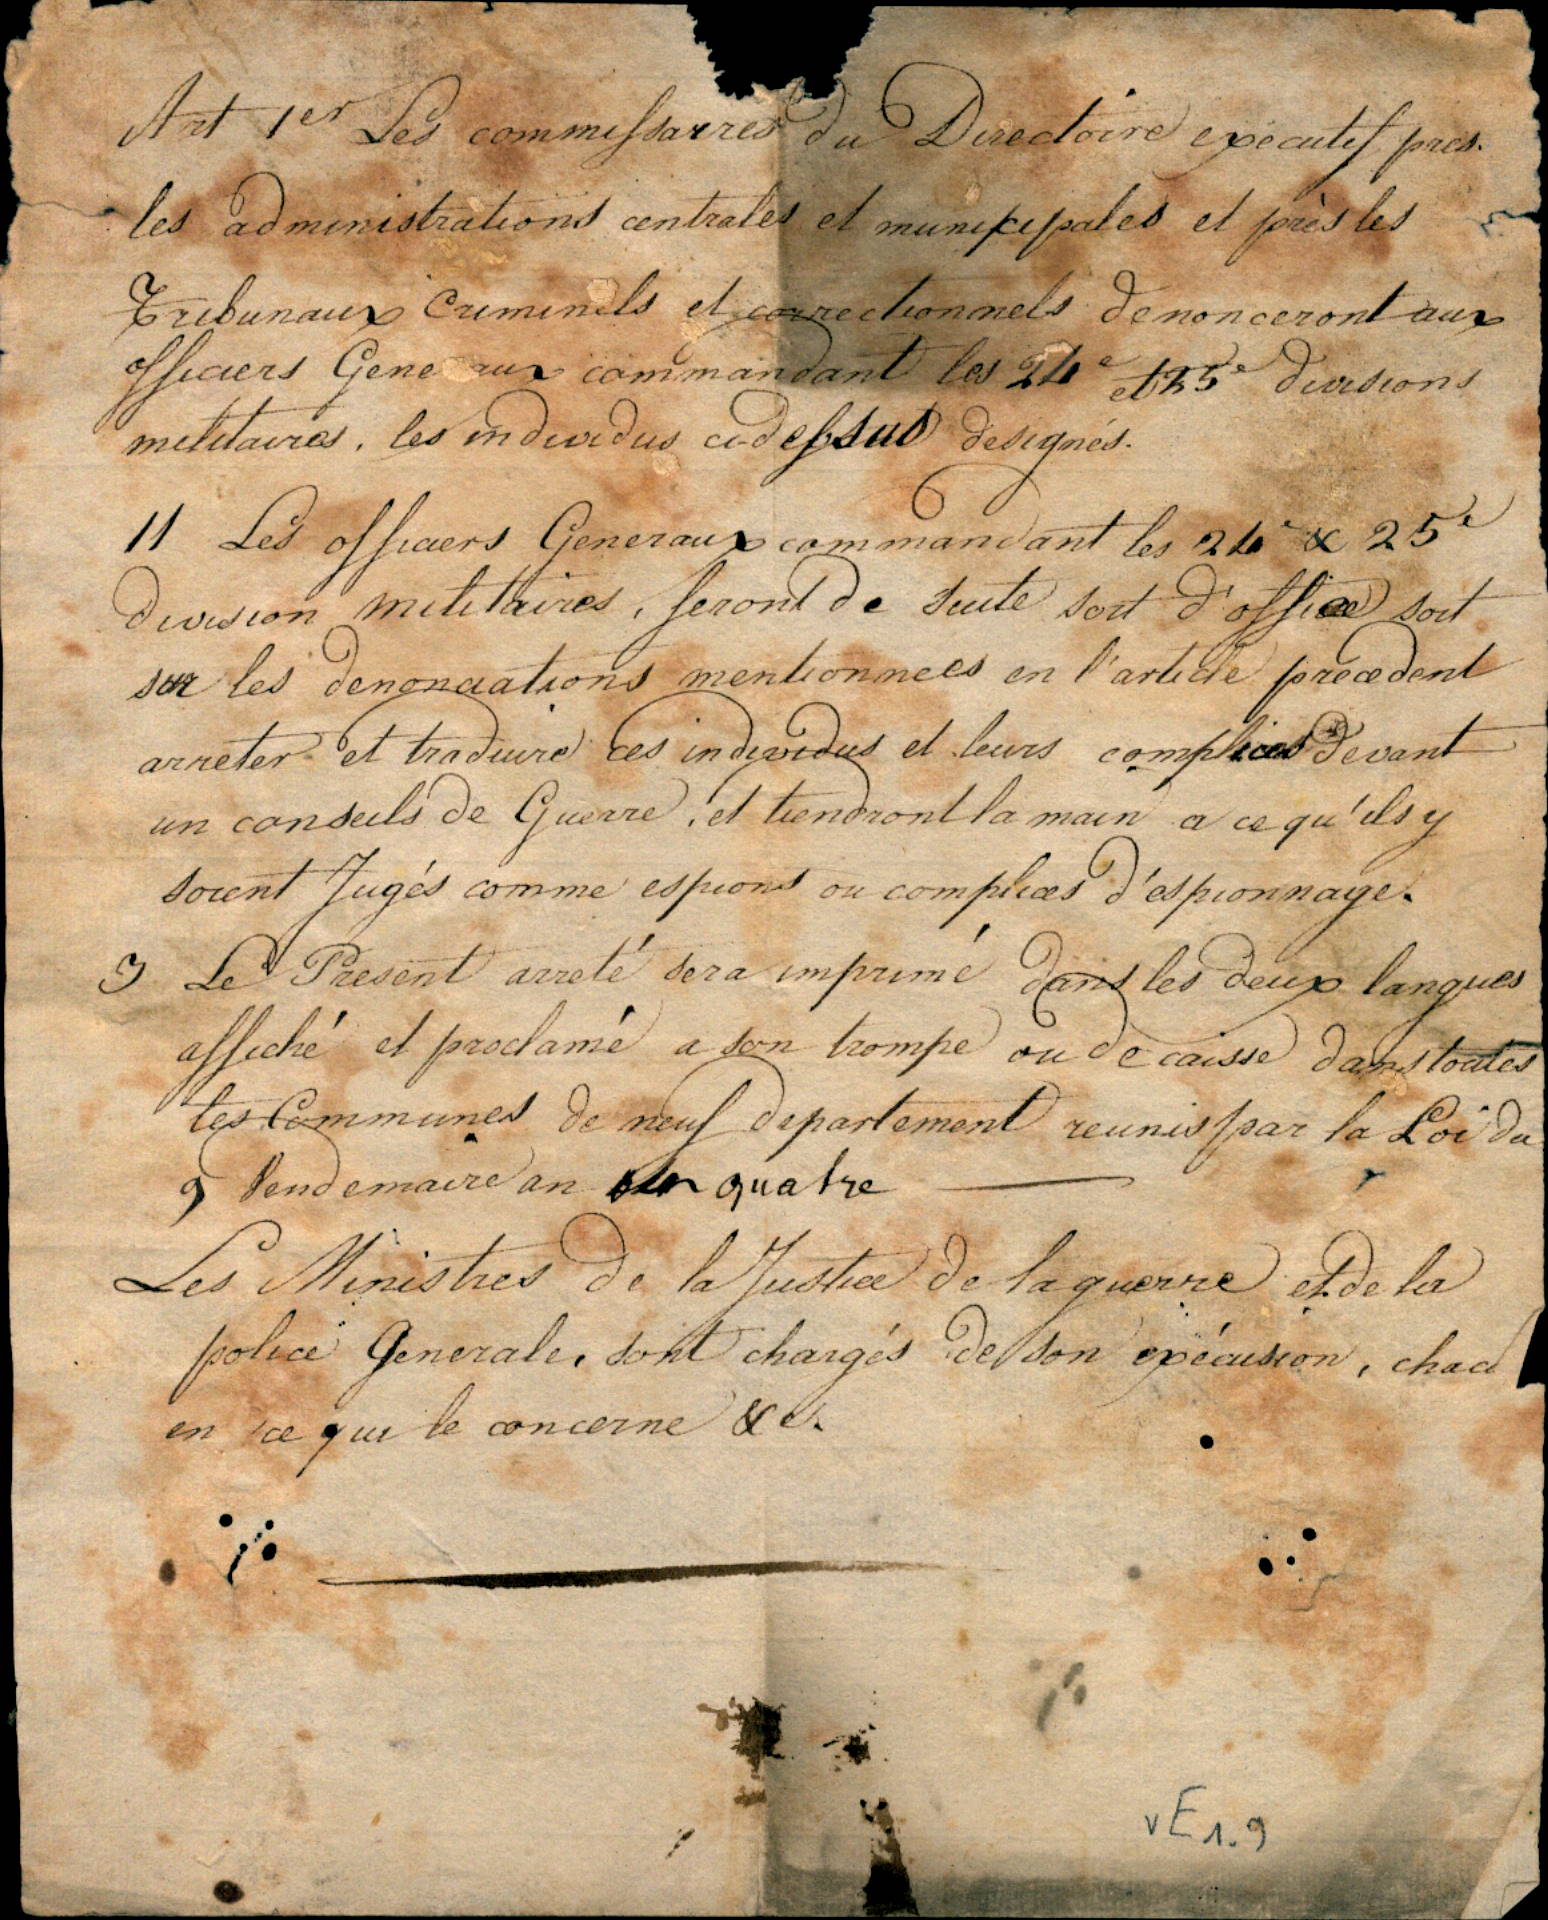 Art 1er Les commissaires du Directoire executif pres
les administrations centrales et municipales et près les
Tribunaux Criminels et correctionnels denonceront aux
officiers Generaux commandant les 24e et 25e divisions
militaires, les individus ci-dessus designés.
11 Les officiers Generaux commandant les 24e & 25e
division militaires, feront de suite soit d'office soit
sur les denonciations mentionnees en l'article precedent
arreter et traduire ces individus et leurs complices devant
un conseils de Guerre, et tiendront la main a ce qu'ils y
soient Jugés comme espions ou complices d'espionnage.
3 Le Present arreté sera imprimé dans les deux langues
affiché et proclamé a son trompe ou de caisse dans toutes
les Communes de neuf departement reunis par la Loi du
9 Vendemaire an quatre
Les Ministres de la Justice de la guerre et de la
police Generale, sont chargés de son exécusion, chac
en ce qui le concerne &c.
vE1.9